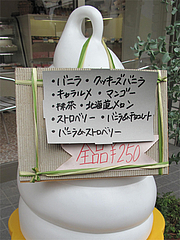 ・バニラ・クッキーズバニラ
・キャラメル・マンゴー
・抹茶・北海道メロン
・ストロベリー・バニラ&チョコレート
・バニラ&ストロベリー
全品¥250